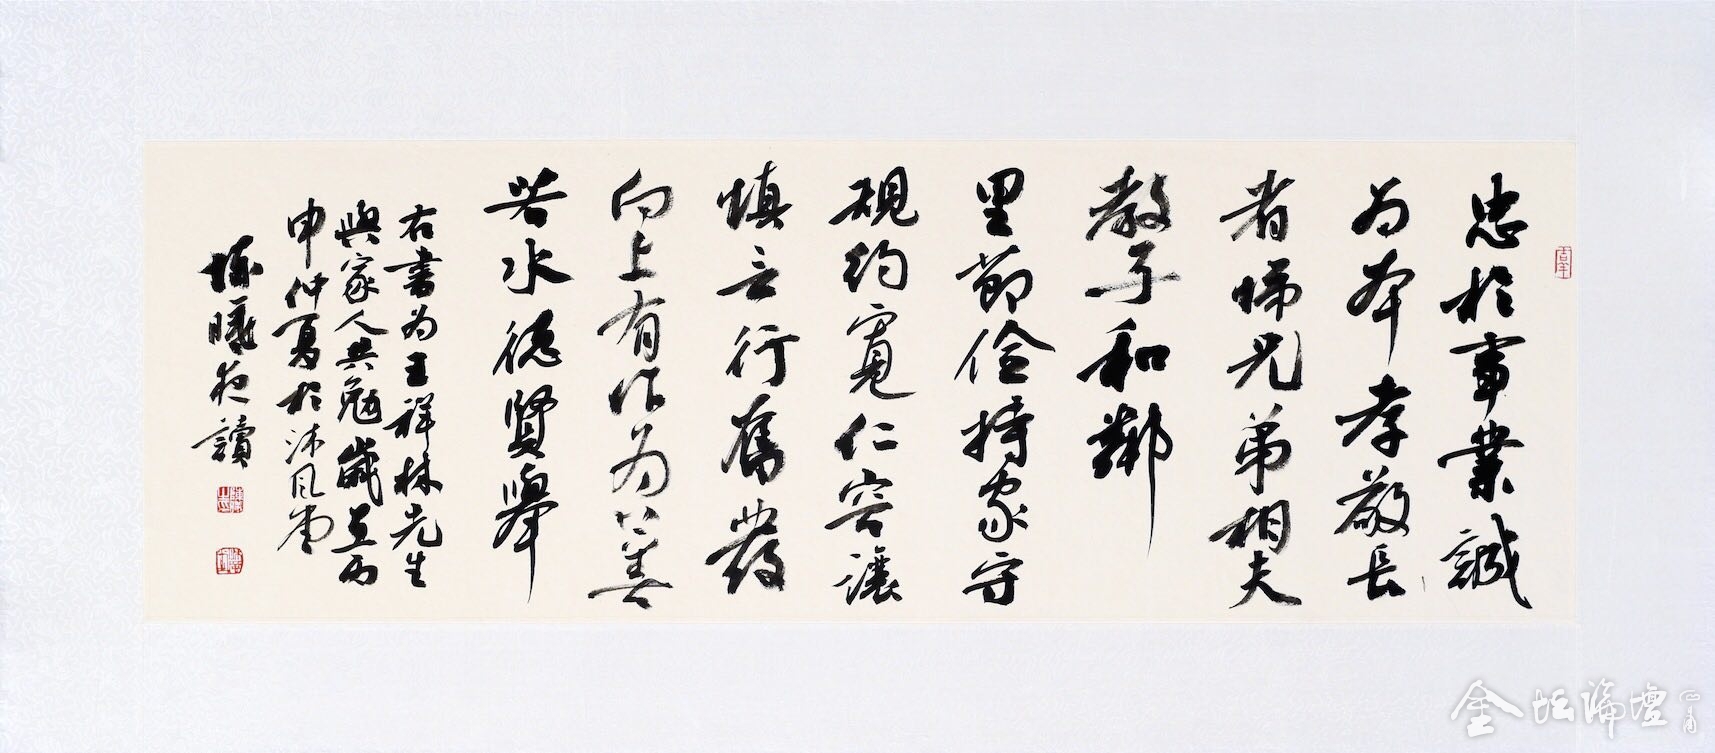 忠於事業誠
為本孝敬長
者悌兄弟相夫
教子和鄰
里節儉持家守
規約寬仁容讓
慎言行奮發
向上有作為上善
若水德賢舉
右書為王祥林先生
與家人共勉歲在丙
申仲夏於沐風堂
陳曦夜讀
金坛論壇